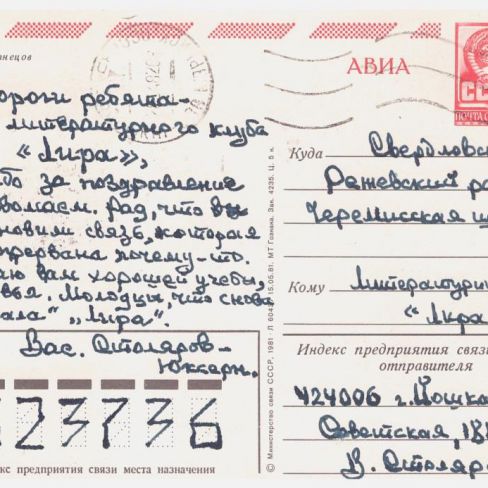 АВИА
ПОЧТА СС
ороги ребята-
литературного клуба
«Лира»,
бо за поздравление
Рад, что вы
новили связь, которая
прервана почему-то.
аю вам хорошей учебы,
вья. Молодцы, что снова
ала" „Лира".
Вас. Столяров-
Юккерн.
Куда Свердловс
Режевский ра
Черемисская ш
Кому Литературн
"Лира
Индекс предприятия связи
отправителя
424006 г. Йошка
Советская, 18
В. Столяро
23736
кс предприятия связи места назначения
© Министерство связи СССР, 1981 15.05.81. МТ Гознака. Зак. 4235. Ц. 5 к.